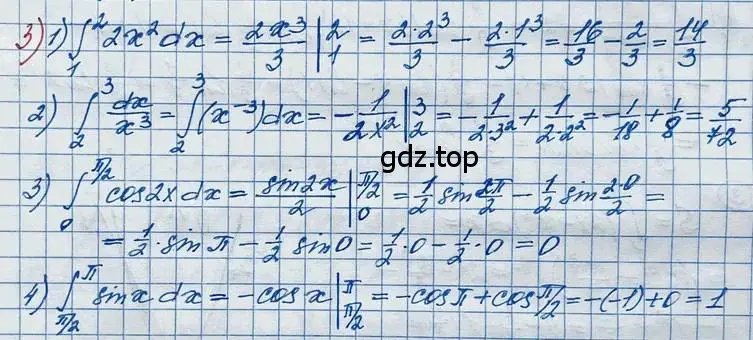 3) 1) ∫₁² 2x² dx = 2x³/3 |₁² = 2·2³/3 − 2·1³/3 = 16/3 − 2/3 = 14/3
2) ∫₂³ dx/x³ = ∫₂³ (x⁻³)dx = −1/2x² |₂³ = −1/2·3² + 1/2·2² = −1/18 + 1/8 = 5/72
gdz.top
3) ∫₀^π/2 cos2x dx = sin2x/2 |₀^π/2 = 1/2 sin 2π/2 − 1/2 sin 2·0/2 =
= 1/2 · sin π − 1/2 sin 0 = 1/2 · 0 − 1/2 · 0 = 0
4) ∫π/2^π sinx dx = −cos x |π/2^π = −cosπ + cosπ/2 = −(−1)+0 = 1